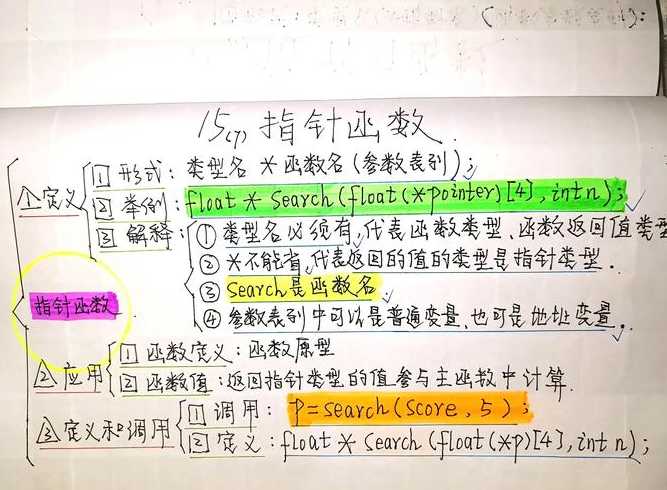 15(7) 指针函数.
1 定义
1 形式: 类型名 * 函数名(参数表列);
2 举例: float * search(float(*pointer)[4], int n);
3 解释: ① 类型名必须有,代表函数类型、函数返回值类型
② *不能省,代表返回的值的类型是指针类型.
③ Search是函数名
④ 参数表列中可以是普通变量、也可是地址变量.
指针函数
2 应用
1 函数定义: 函数原型
2 函数值: 返回指针类型的值参与主函数中计算.
3 定义和调用
1 调用: P=search(score, 5);
2 定义: float * search(float(*p)[4], int n);